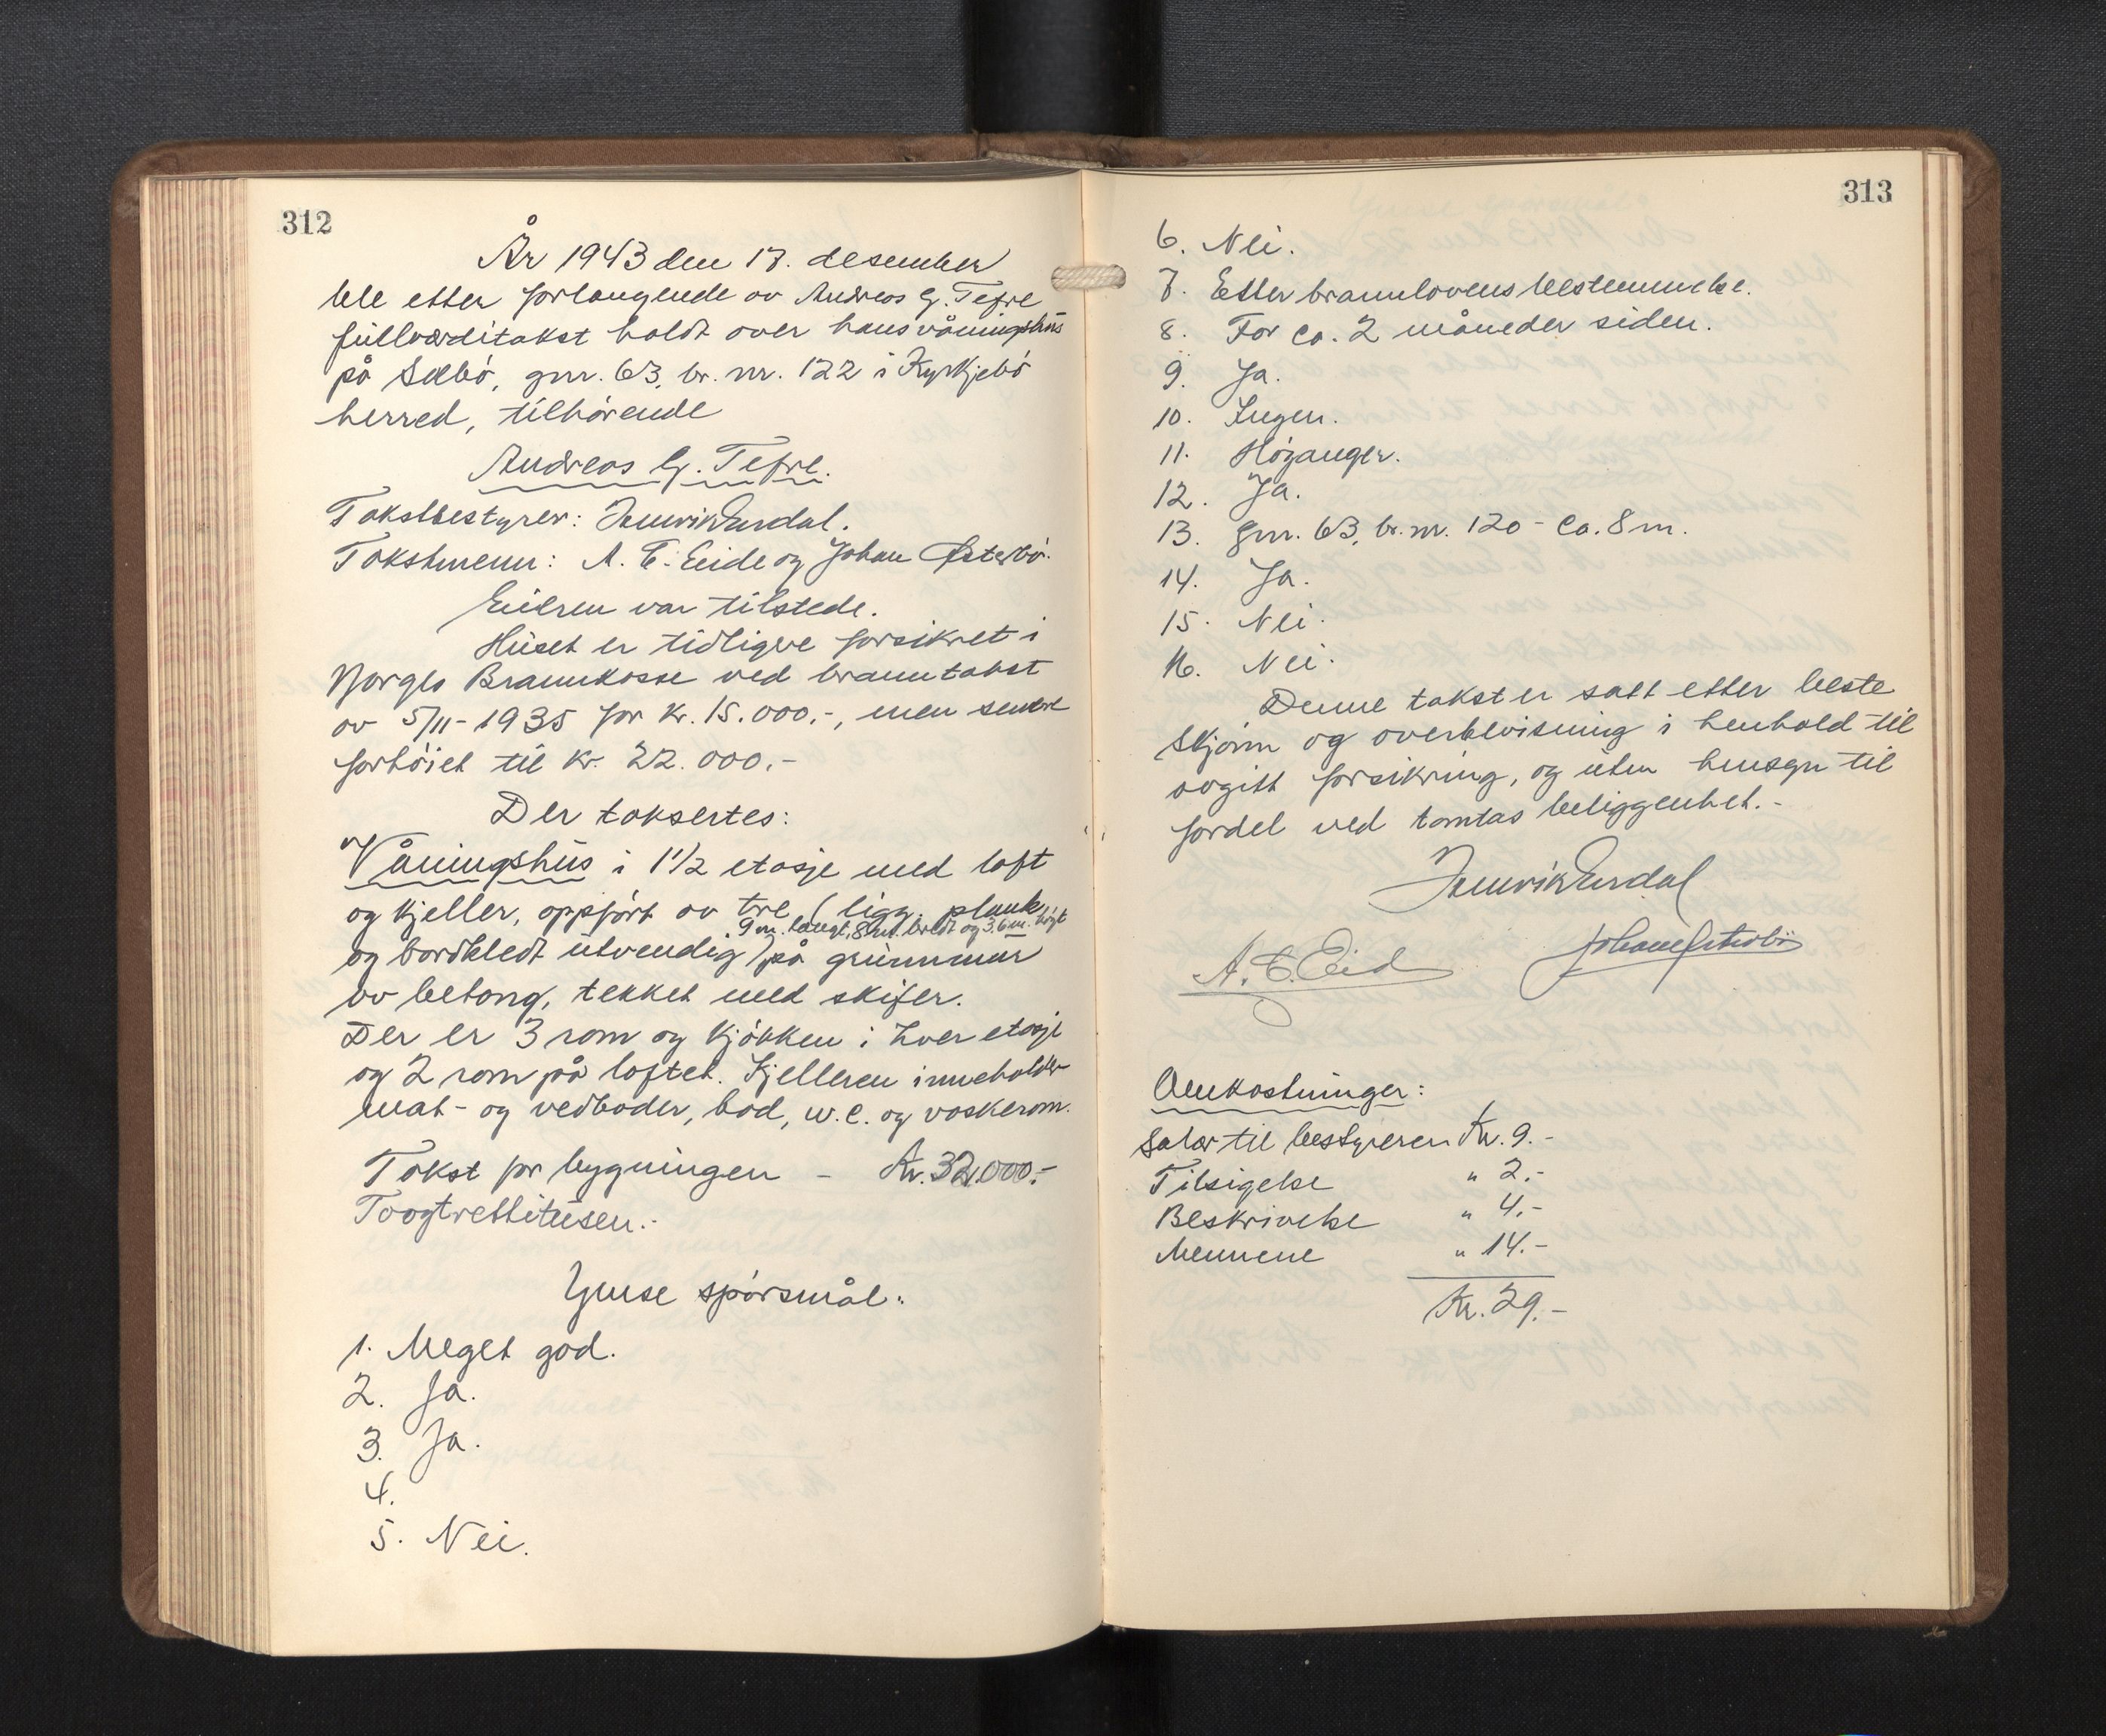 312
År 1943 den 17. desember
ble etter forlangende av Andreas G. Tefre
fullværditakst holdt over hans våningshus
på Sæbö, gnr. 63, br. nr. 122 i Kyrkjebö
herred, tilhörende
Andreas G. Tefre.
Takstbestyrer:
Takstmenn: A. E. Eide og Johan Österbö.
Eieren var tilstede.
Huset er tidligere forsikret i
Norges Brannkasse ved branntakst
av 5/11-1935 for kr. 15.000.-, men senere
forhöiet til kr. 22.000.-
Der taksertes:
Våningshus i 1 1/2 etasje med loft
og kjeller, oppfört av tre (ligg. plank
9 m. langt, 8 m. bredt og 3.6 m. högt
og bordkledt utvendig) på grunnmur
av betong, tekket med skifer.
Der er 3 rom og kjökken i hver etasje
og 2 rom på loftet. Kjelleren inneholder
mat- og vedboder, bad, w.c. og vaskerom.
Takst for bygningen - Kr. 32.000.-
Toogtrettitusen.-
Ymse spörsmål:
1. Meget god.
2. Ja.
3. Ja.
4.
5. Nei.
313
6. Nei.
7. Etter brannlovens bestemmelse.
8. For ca. 2 måneder siden.
9. Ja.
10. Ingen.
11. Höyanger.
12. Ja.
13. gnr. 63, br. nr. 120 - ca. 8 m.
14. Ja.
15. Nei.
16. Nei.
Denne takst er satt etter beste
skjönn og overbevisning i henhold til
avgitt forsikring, og uten hensyn til
fordel ved tomtas beliggenhet.-
A. E. Eide
Johan Österbö
Omkostninger:
Salær til bestyreren Kr. 9.-
Tilsigelse " 2.-
Beskrivelse " 4.-
Mennene " 14.-
Kr. 29.-